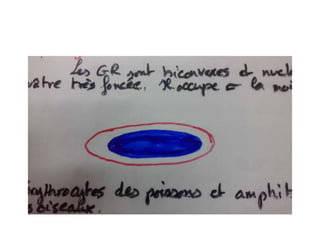 Les GR sont biconvexes et nucl
très foncée. Il occupe = la moi
érythrocytes des poissons et amphib
oiseaux.